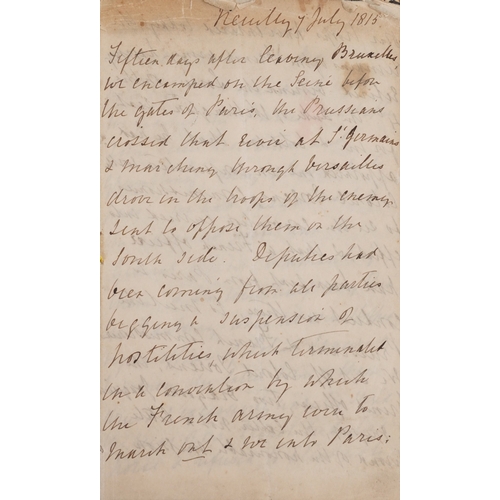 Neuilly 7 July 1815
Fifteen days after leaving Bruxelles,
we encamped on the Seine before
the gates of Paris, the Prussians
crossed that river at St. Germains
& marching through Versailles
drove in the troops of the enemy
sent to oppose them on the
South side. Deputies had
been coming from all parties
begging a suspension of
hostilities, which terminated
in a convention by which
the French army were to
march out & we into Paris: